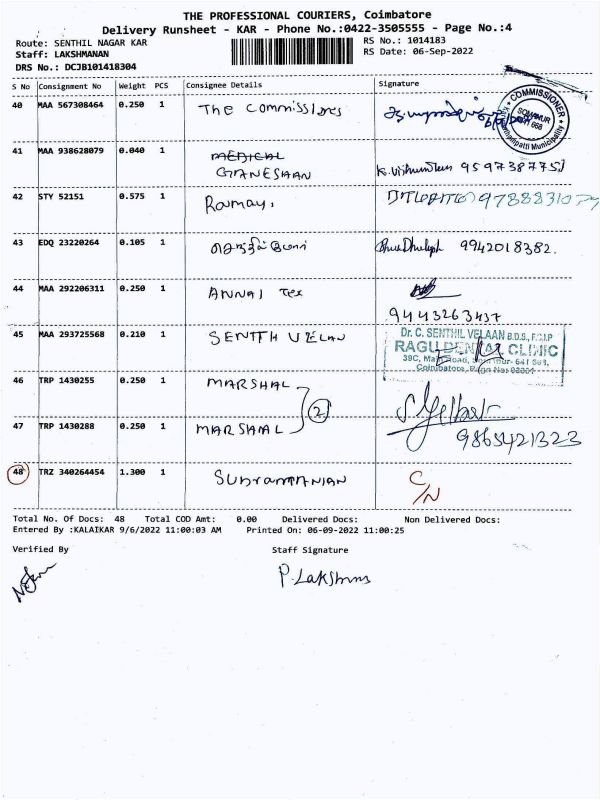 THE PROFESSIONAL COURIERS, Coimbatore
Delivery Runsheet - KAR - Phone No.:0422-3505555 - Page No.:4
Route: SENTHIL NAGAR KAR
RS No.: 1014183
Staff: LAKSHMANAN
RS Date: 06-Sep-2022
DRS No.: DCJB101418304
S No Consignment No Weight PCS Consignee Details Signature
40 MAA 567308464 0.250 1 The
COMMISSIONER
SOMANUR
668
Municipality
41 MAA 938628079 0.040 1 MEDICAL
GANESHAN 9597387751
42 STY 52151 0.575 1 Ramay.
43 EDQ 23220264 0.105 1 செந்தில் 9942018382.
44 MAA 292206311 0.250 1 ANNAI Tex
9443263437
45 MAA 293725568 0.210 1 SENTH VELAN
Dr. C. SENTHIL VELAAN B.D.S.,
RAGU DENTAL CLINIC
39C, Main Road,
Coimbatore,
46 TRP 1430255 0.250 1 MARSHAL
(2)
47 TRP 1430288 0.250 1 MARSHAL
9865421323
48 TRZ 340264454 1.300 1 Subramanian C/N
Total No. Of Docs: 48 Total COD Amt: 0.00 Delivered Docs: Non Delivered Docs:
Entered By :KALAIKAR 9/6/2022 11:00:03 AM Printed On: 06-09-2022 11:00:25
Verified By Staff Signature
P. Lakshmn